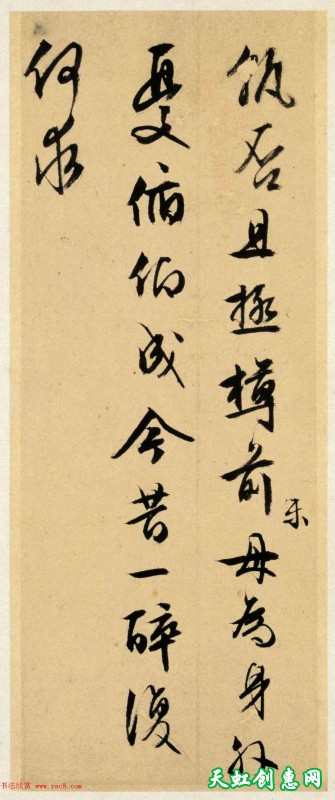 領否且極樽前樂毋為身外
憂俯仰成今昔一醉復
何求
书法欣赏 www.yac8.com
天虹创惠网